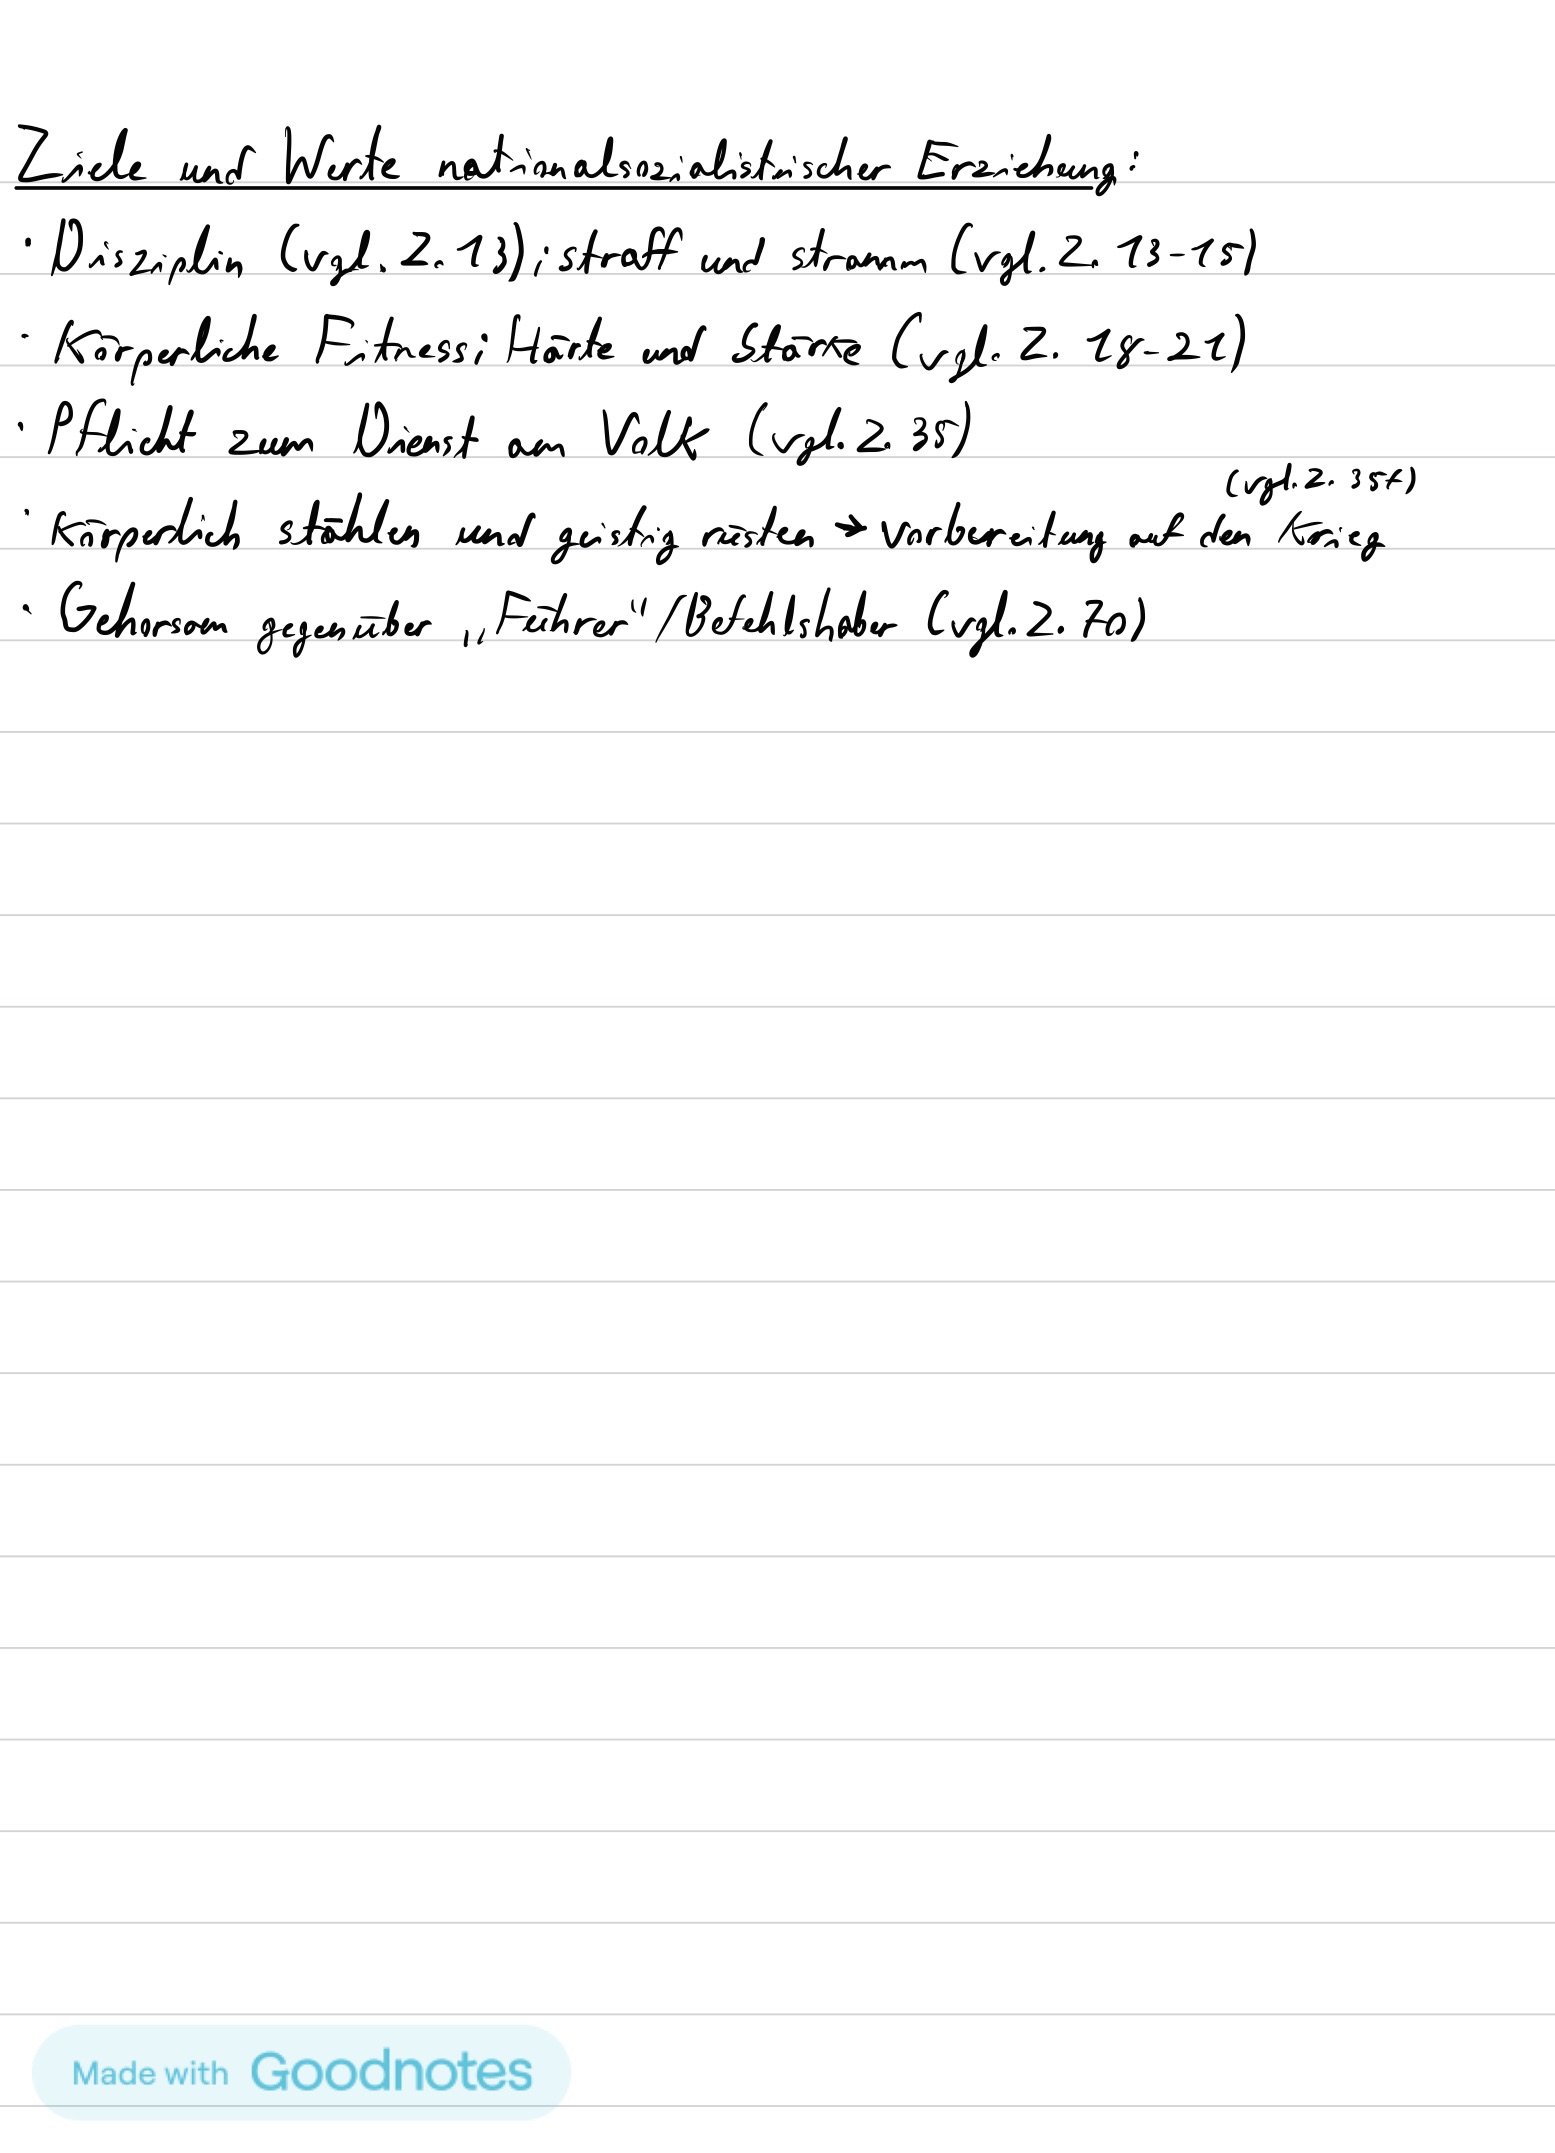 Ziele und Werte nationalsozialistischer Erziehung:
· Disziplin (vgl. Z. 13); straff und stramm (vgl. Z. 13-15)
· Körperliche Fitness; Härte und Stärke (vgl. Z. 18-21)
· Pflicht zum Dienst am Volk (vgl. Z. 35)
(vgl. Z. 35f)
· Körperlich stählen und geistig rüsten → Vorbereitung auf den Krieg
· Gehorsam gegenüber „Führer"/Befehlshaber (vgl. Z. 70)
Made with Goodnotes